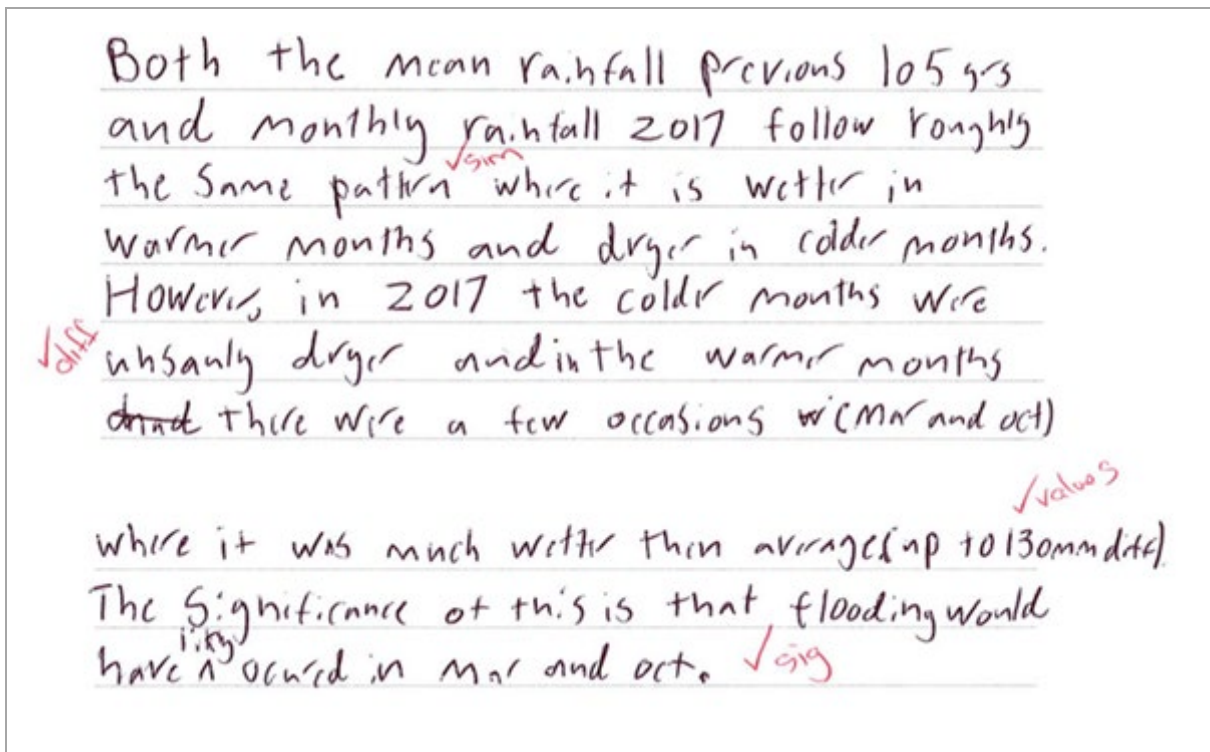 Both the mean rainfall previous 105 yrs
and monthly rainfall 2017 follow roughly
✓sim
the same pattern where it is wetter in
warmer months and dryer in colder months.
However, in 2017 the colder months were
✓diff
unsaunly dryer and in the warmer months
there were a few occasions (Mar and oct)
✓values
where it was much wetter then average (up to 130mm diff)
The significance of this is that flooding would
likly
have ∧ ocured in Mar and oct. ✓sig